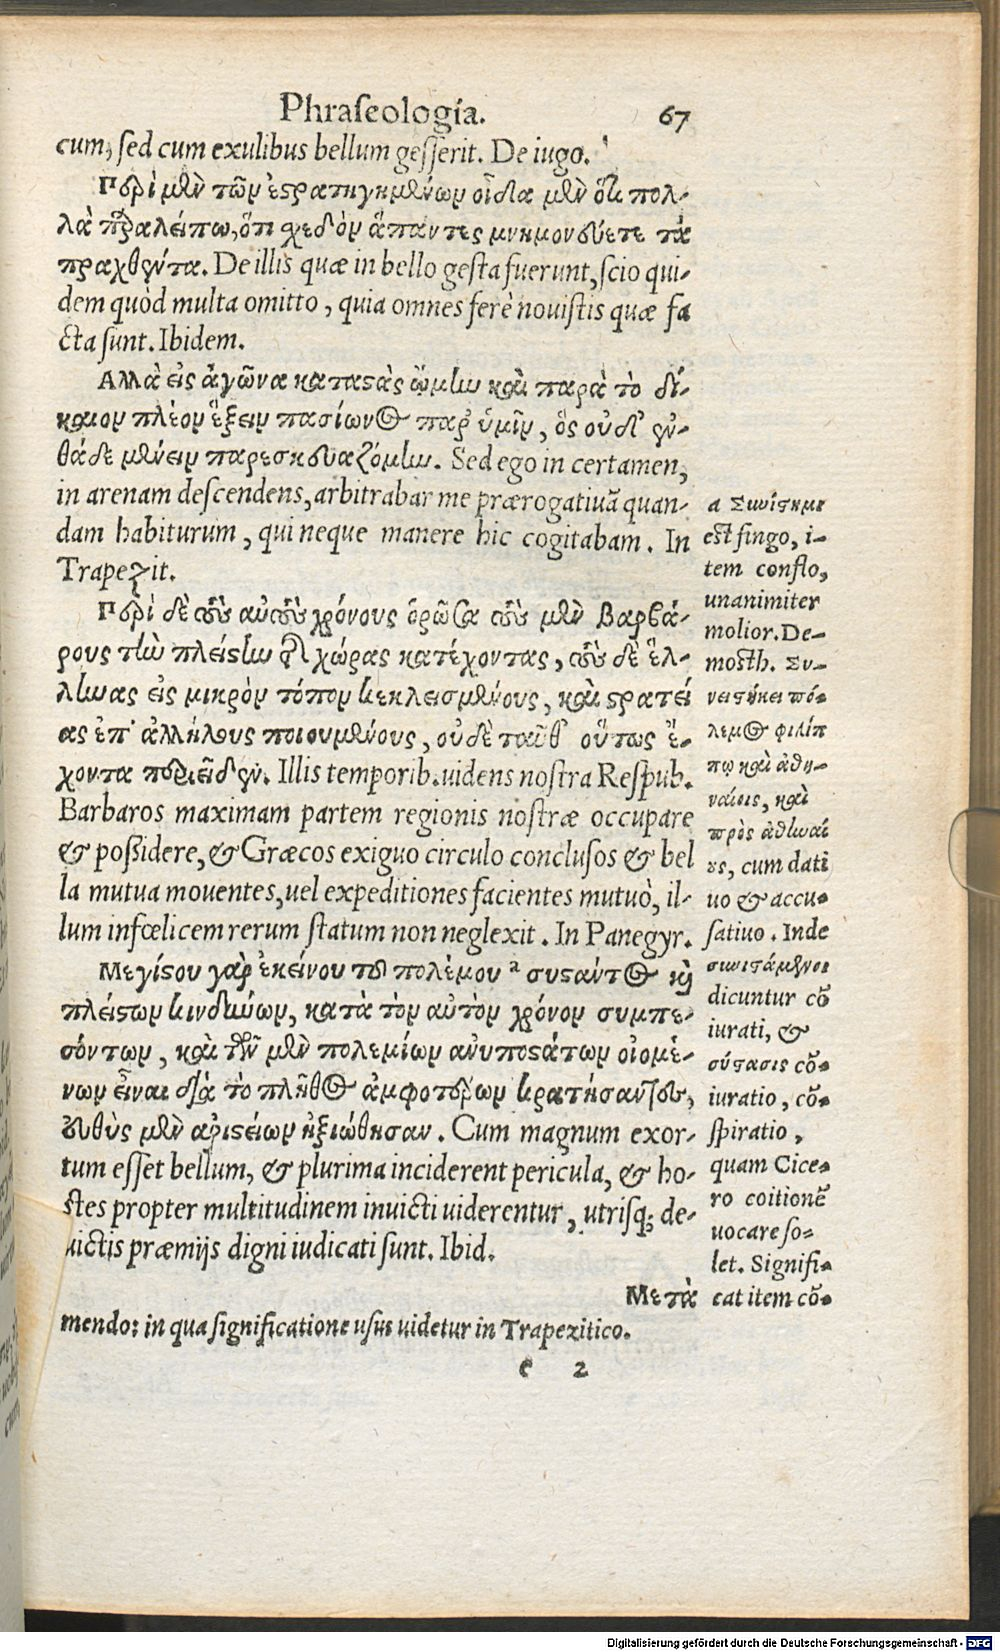 Phraseologia. 67
cum, sed cum exulibus bellum gesserit. De iugo.
Περὶ μὲν τῶν ἐστρατηγημένων οἶδα μὲν ὅτι πολ-
λὰ παραλείπω, ὅτι σχεδὸν ἅπαντες μνημονεύετε τὰ
πραχθέντα. De illis quæ in bello gesta fuerunt, scio qui-
dem quòd multa omitto, quia omnes ferè nouistis quæ fa
cta sunt. Ibidem.
Αλλὰ εἰς ἀγῶνα καταστὰς ᾤμην καὶ παρὰ τὸ δί-
καιον πλέον ἕξειν πασίωνος παρ' ὑμῖν, ὃς οὐδ' ἐν-
θάδε μένειν παρεσκευαζόμην. Sed ego in certamen,
in arenam descendens, arbitrabar me prærogatiuã quan-
dam habiturum, qui neque manere hic cogitabam. In
Trapezit.
Περὶ δὲ τοὺς αὐτοὺς χρόνους ὁρῶσα τοὺς μὲν Βαρβά-
ρους τὴν πλείστην τῆς χώρας κατέχοντας, τοὺς δὲ ἕλ-
ληνας εἰς μικρὸν τόπον κεκλεισμένους, καὶ στρατεί
ας ἐπ' ἀλλήλους ποιουμένους, οὐδὲ ταῦθ' οὕτως ἔ-
χοντα περιεῖδεν. Illis temporib. uidens nostra Respub.
Barbaros maximam partem regionis nostræ occupare
& possidere, & Græcos exiguo circulo conclusos & bel
la mutua mouentes, uel expeditiones facientes mutuò, il-
lum infœlicem rerum statum non neglexit. In Panegyr.
Μεγίστου γὰρ ἐκείνου τοῦ πολέμου a συστάντος καὶ
πλείστων κινδύνων, κατὰ τὸν αὐτὸν χρόνον συμπε-
σόντων, καὶ τῶν μὲν πολεμίων ἀνυποστάτων οἰομέ-
νων εἶναι διὰ τὸ πλῆθος ἀμφοτέρων κρατήσαντες,
εὐθὺς μὲν ἀριστείων ἠξιώθησαν. Cum magnum exor-
tum esset bellum, & plurima inciderent pericula, & ho-
stes propter multitudinem inuicti uiderentur, utrisq; de-
uictis præmijs digni iudicati sunt. Ibid.
Μετὰ
a Συνίστημι
est fingo, i-
tem conflo,
unanimiter
molior. De-
mosth. Συ-
νειστήκει πό-
λεμος φιλίπ
πῳ καὶ ἀθη-
ναίοις, καὶ
πρὸς ἀθηναί
ους, cum dati
uo & accu-
satiuo. Inde
συνιστάμενοι
dicuntur cõ
iurati, &
σύστασις cõ-
iuratio, cõ-
spiratio,
quam Cice-
ro coitionẽ
uocare so-
let. Signifi-
cat item cõ-
mendo: in qua significatione usus uidetur in Trapezitico.
e 2
Digitalisierung gefördert durch die Deutsche Forschungsgemeinschaft - DFG